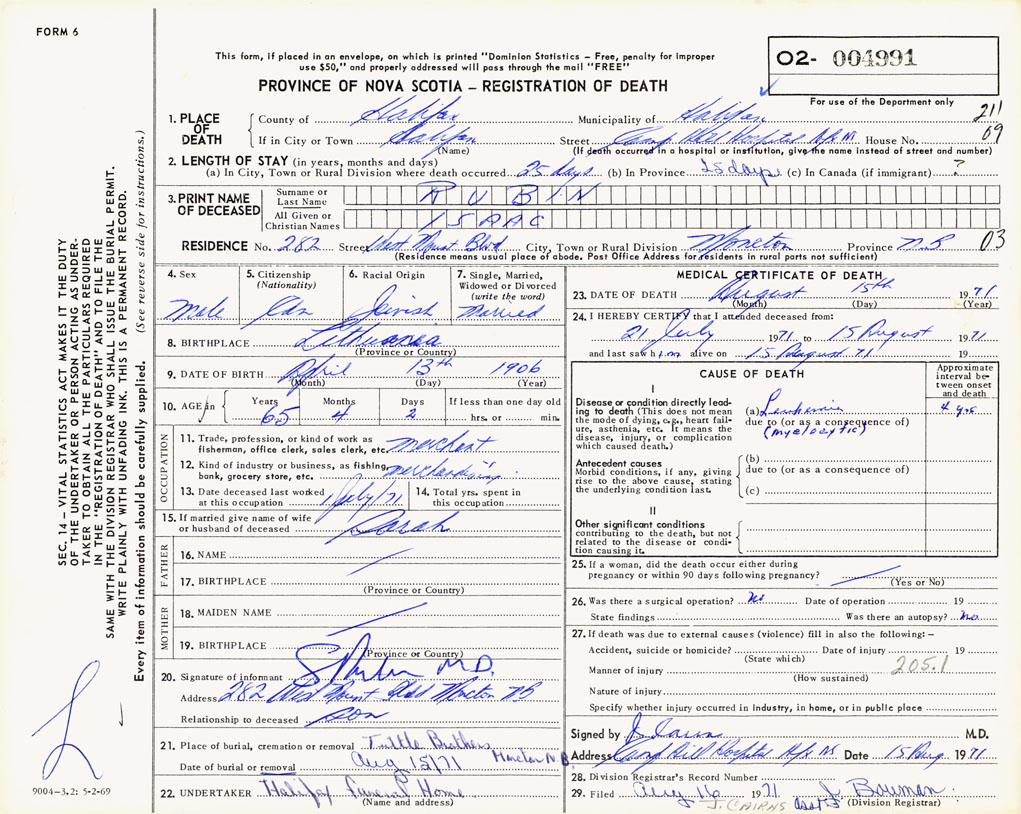 FORM 6
This form, if placed in an envelope, on which is printed "Dominion Statistics – Free, penalty for improper
use $50," and properly addressed will pass through the mail "FREE"
PROVINCE OF NOVA SCOTIA – REGISTRATION OF DEATH
O2- 004991
For use of the Department only
211
09
1. PLACE OF DEATH
County of Halifax Municipality of Halifax
If in City or Town Halifax Street Camp Hill Hospital House No.
(Name) (If death occurred in a hospital or institution, give the name instead of street and number)
2. LENGTH OF STAY (in years, months and days)
(a) In City, Town or Rural Division where death occurred 25 days (b) In Province 25 days (c) In Canada (if immigrant) ?
3. PRINT NAME OF DECEASED
Surname or Last Name RUBIN
All Given or Christian Names ISAAC
RESIDENCE No. 282 Street West Mount Blvd City, Town or Rural Division Moncton Province N.B 03
(Residence means usual place of abode. Post Office Address for residents in rural parts not sufficient)
4. Sex Male
5. Citizenship (Nationality) Cdn
6. Racial Origin Jewish
7. Single, Married, Widowed or Divorced (write the word) Married
8. BIRTHPLACE Lithuania
(Province or Country)
9. DATE OF BIRTH April 13th 1906
(Month) (Day) (Year)
10. AGE in Years 65 Months 4 Days 2 If less than one day old hrs. or min.
OCCUPATION
11. Trade, profession, or kind of work as fisherman, office clerk, sales clerk, etc. merchant
12. Kind of industry or business, as fishing, bank, grocery store, etc. merchandising
13. Date deceased last worked at this occupation 1 July/71
14. Total yrs. spent in this occupation
15. If married give name of wife or husband of deceased Sarah
FATHER
16. NAME
17. BIRTHPLACE
(Province or Country)
MOTHER
18. MAIDEN NAME
19. BIRTHPLACE
(Province or Country)
20. Signature of informant M.D.
Address 282 West Mount Blvd Moncton NB
Relationship to deceased son
21. Place of burial, cremation or removal Tuttle Brothers Moncton N.B.
Date of burial or removal Aug 15/71
22. UNDERTAKER Halifax Funeral Home
(Name and address)
MEDICAL CERTIFICATE OF DEATH
23. DATE OF DEATH August 15th 1971
(Month) (Day) (Year)
24. I HEREBY CERTIFY that I attended deceased from:
21 July 1971 to 15 August 1971
and last saw him alive on 15 August 71 19
CAUSE OF DEATH
Approximate interval between onset and death
I
Disease or condition directly leading to death (This does not mean the mode of dying, e.g., heart failure, asthenia, etc. It means the disease, injury, or complication which caused death.)
(a) Leukemia 4 yrs
due to (or as a consequence of)
Antecedent causes
Morbid conditions, if any, giving rise to the above cause, stating the underlying condition last.
(b)
due to (or as a consequence of)
(c)
II
Other significant conditions
contributing to the death, but not related to the disease or condition causing it.
25. If a woman, did the death occur either during pregnancy or within 90 days following pregnancy?
(Yes or No)
26. Was there a surgical operation? No Date of operation 19
State findings Was there an autopsy? No.
27. If death was due to external causes (violence) fill in also the following:–
Accident, suicide or homicide? Date of injury 19
(State which)
205.1
Manner of injury
(How sustained)
Nature of injury
Specify whether injury occurred in industry, in home, or in public place
Signed by M.D.
Address Camp Hill Hospital Date 15 Aug 1971
28. Division Registrar's Record Number
29. Filed Aug 16 1971 J. Bowman
J. CAIRNS (Division Registrar)
SEC. 14 – VITAL STATISTICS ACT MAKES IT THE DUTY
OF THE UNDERTAKER OR PERSON ACTING AS UNDER-
TAKER TO OBTAIN ALL THE PARTICULARS REQUIRED
IN THE "REGISTRATION OF DEATH" AND TO FILE THE
SAME WITH THE DIVISION REGISTRAR WHO SHALL ISSUE THE BURIAL PERMIT.
WRITE PLAINLY WITH UNFADING INK. THIS IS A PERMANENT RECORD.
Every item of information should be carefully supplied. (See reverse side for instructions.)
9004–3.2: 5-2-69